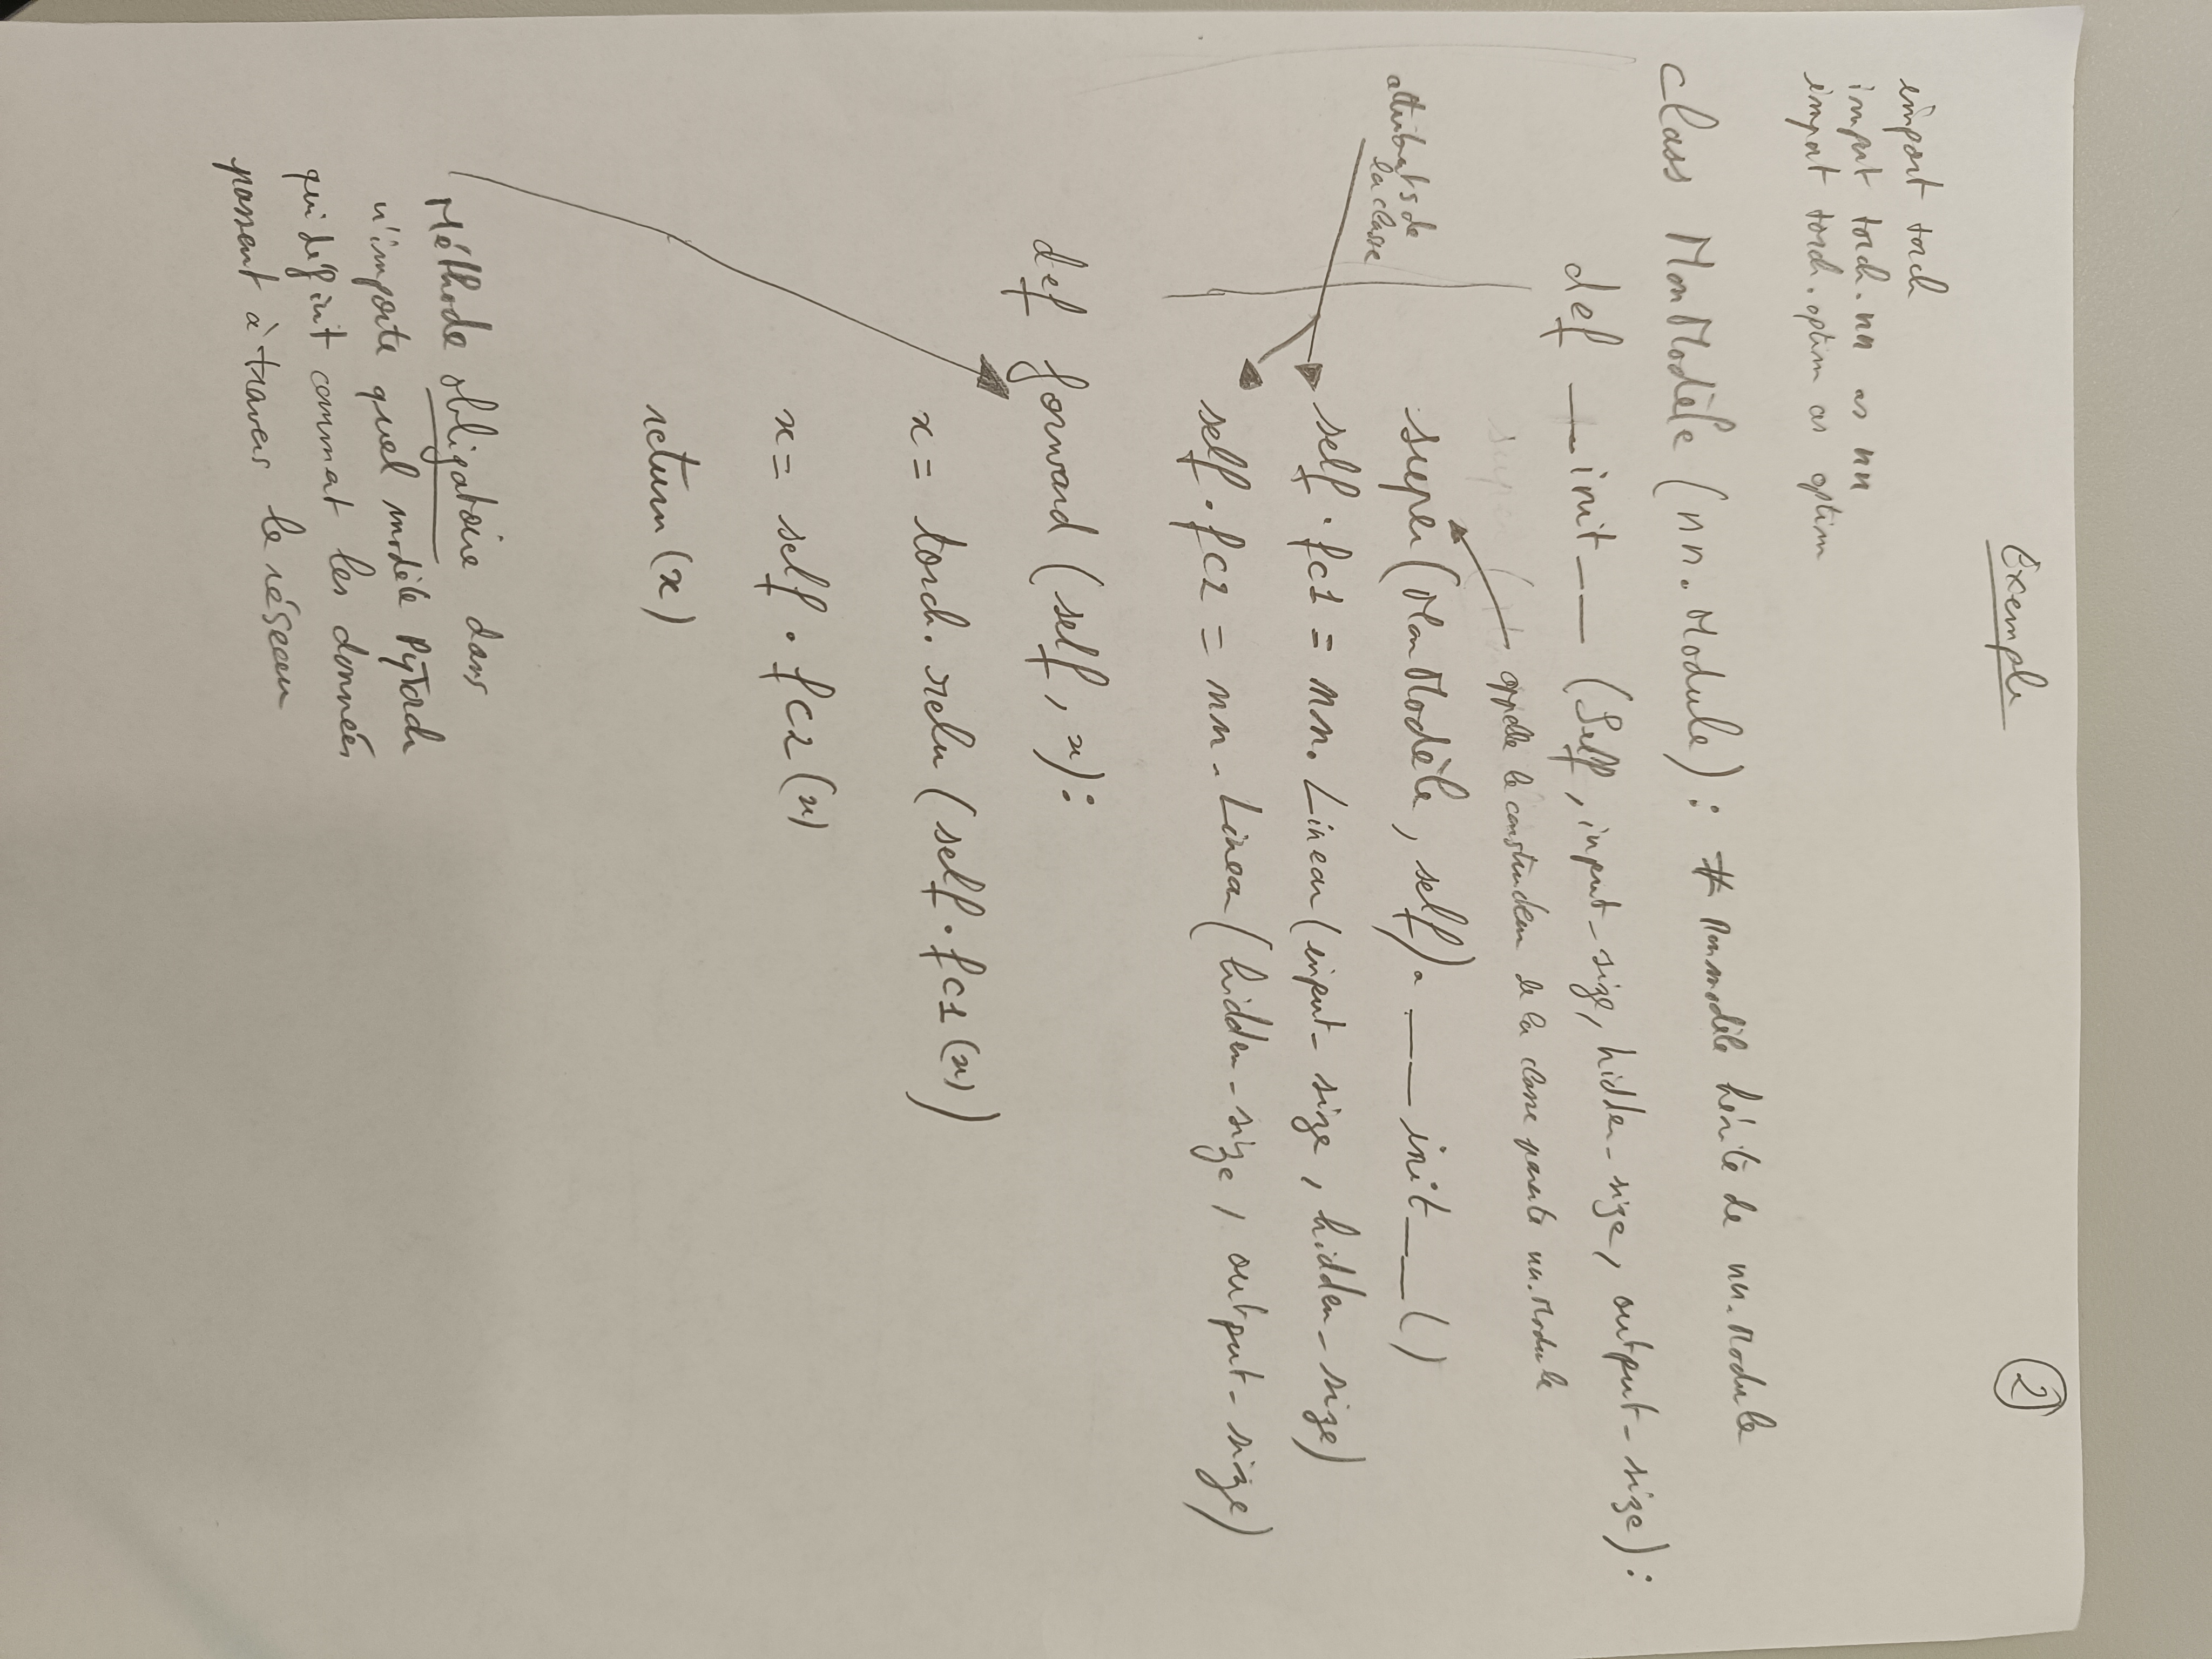 Exemple
2
import torch
import torch.nn as nn
import torch.optim as optim
class MonModèle (nn.Module): # Monmodèle hérite de nn.Module
def __init__ (Self, input_size, hidden_size, output_size):
appelle le constructeur de la classe parente nn.Module
super(MonModèle, self).__init__()
attributs de
la classe
self.fc1 = nn.Linear(input_size, hidden_size)
self.fc2 = nn.Linear(hidden_size, output_size)
def forward (self, x):
x = torch.relu (self.fc1(x))
x = self.fc2(x)
return(x)
Méthode obligatoire dans
n'importe quel modèle PyTorch
qui définit comment les données
passent à travers le réseau